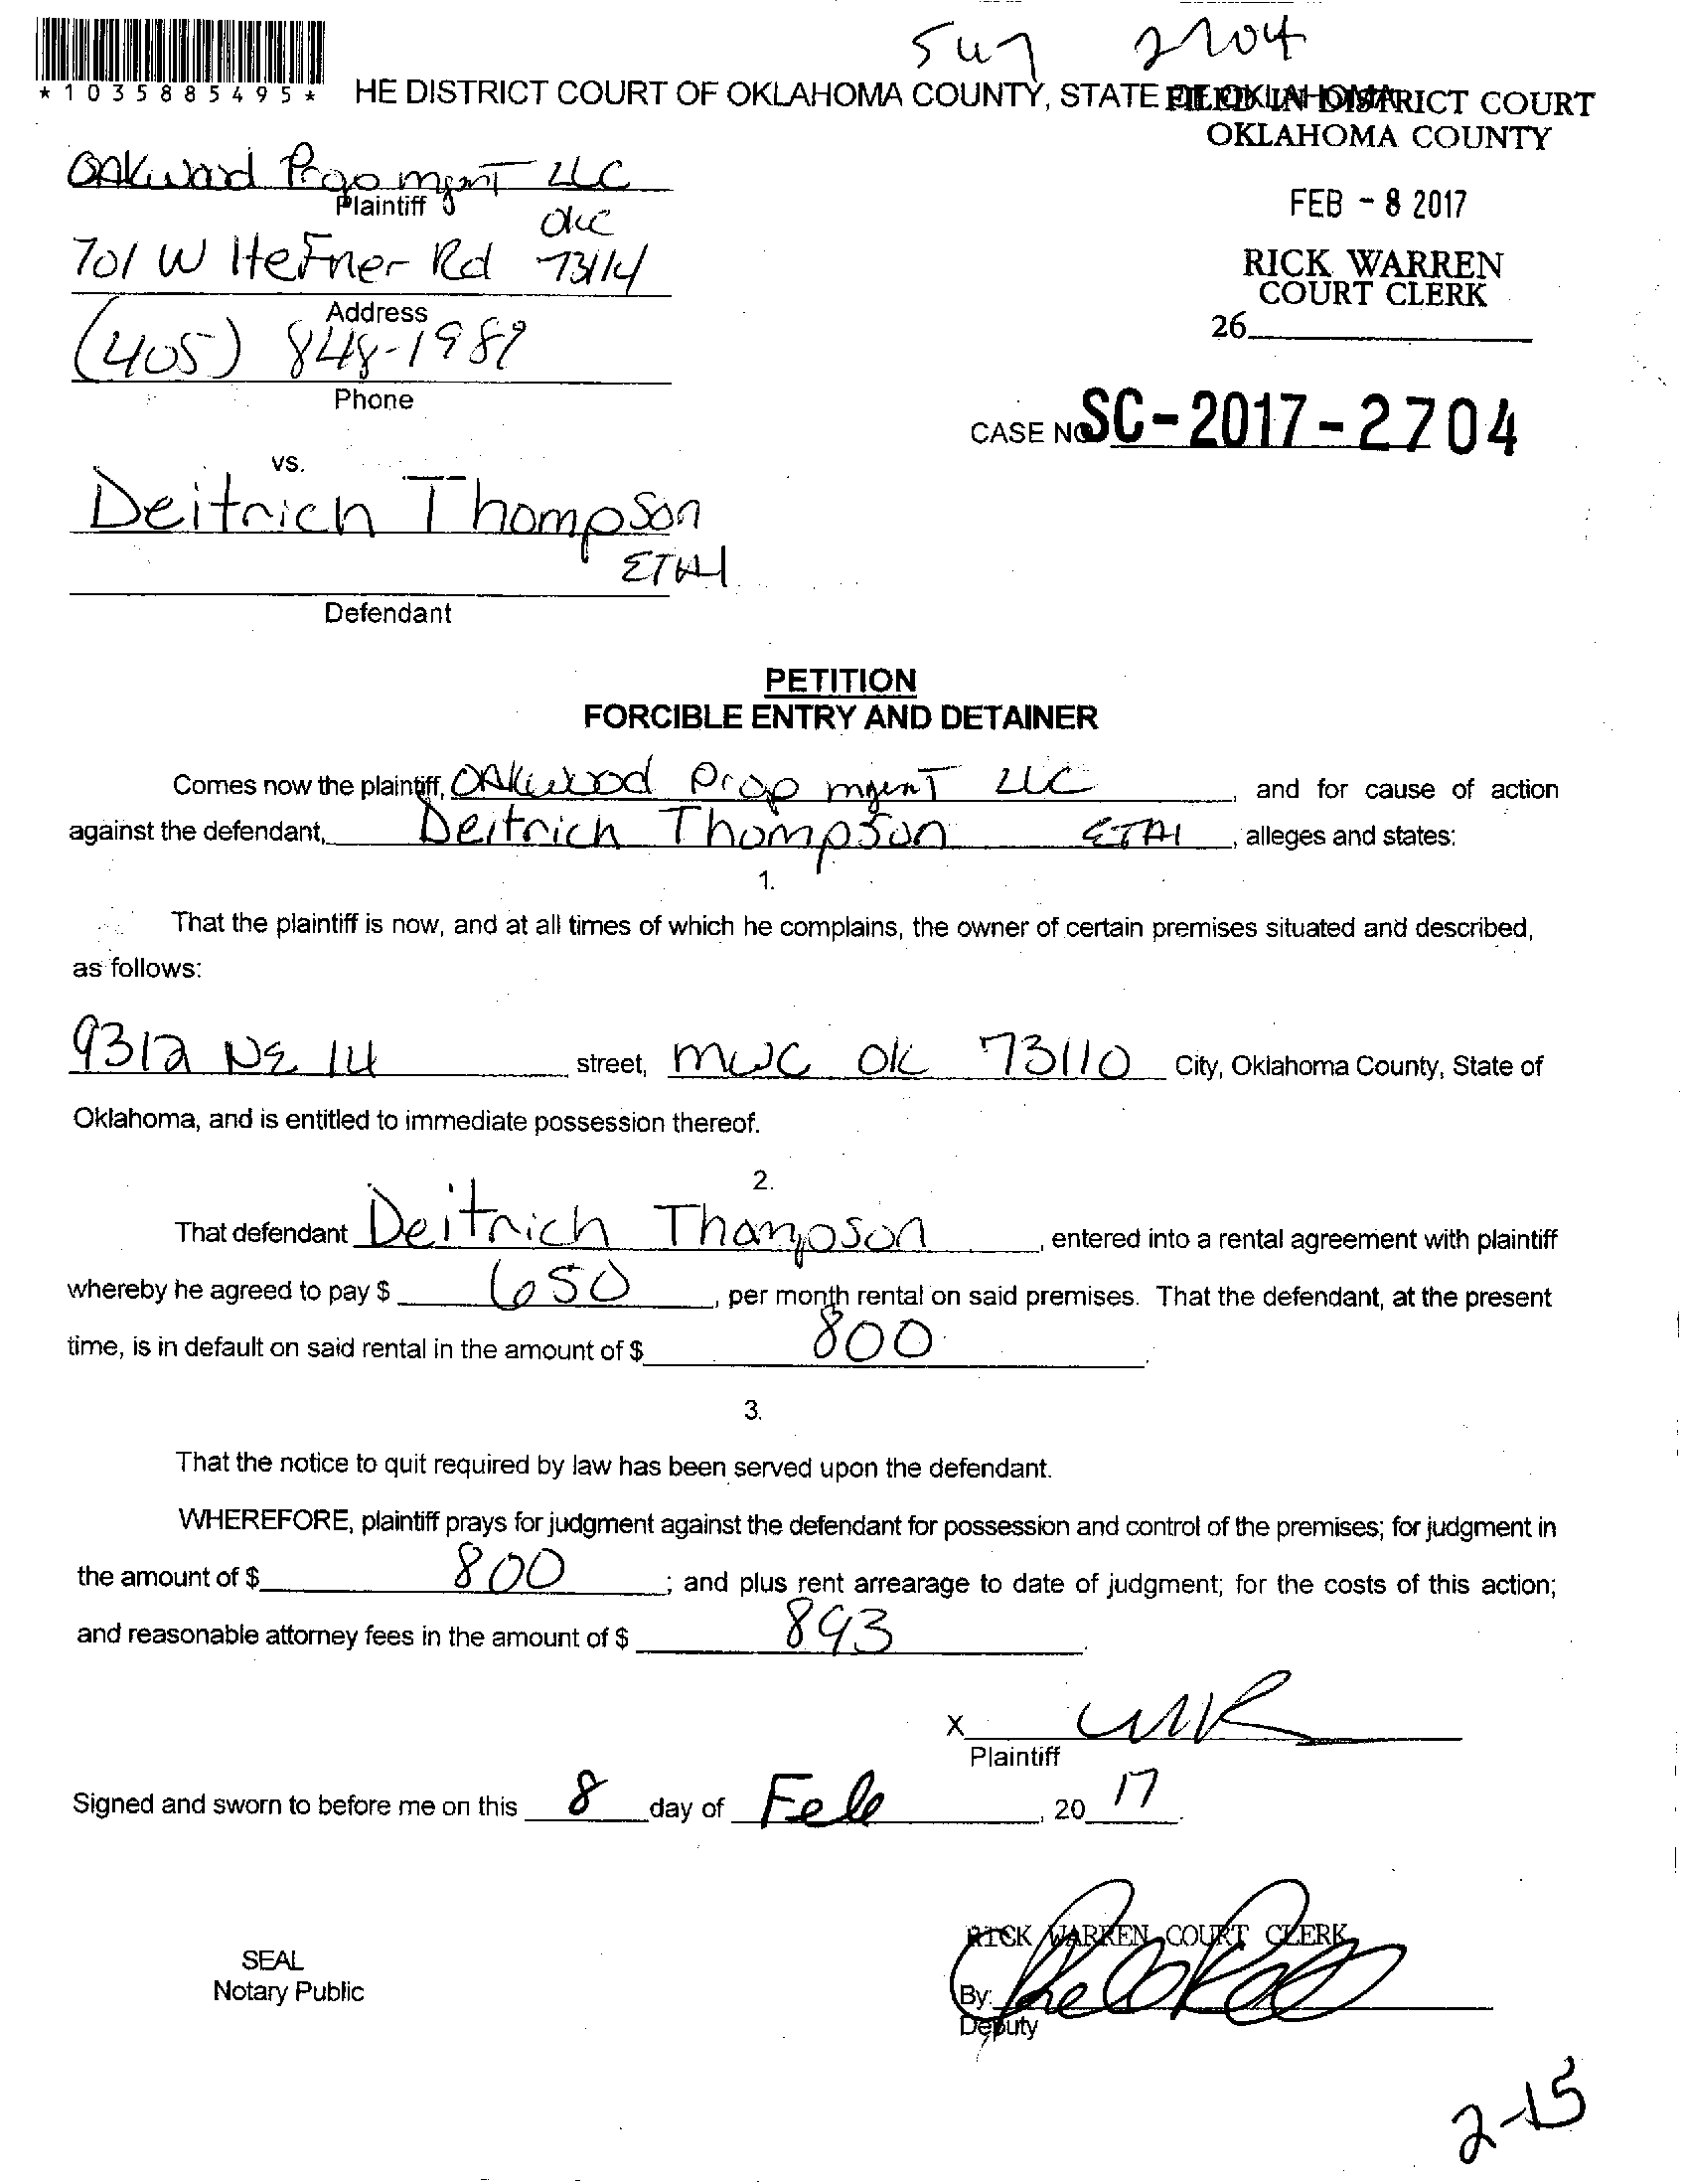 2704
*1035885495*
HE DISTRICT COURT OF OKLAHOMA COUNTY, STATE OF OKLAHOMA
FILED IN DISTRICT COURT
OKLAHOMA COUNTY
FEB - 8 2017
RICK WARREN
COURT CLERK
26
Oakwood Prop mgmT LLC
Plaintiff
OKC
701 W HeFner Rd 73114
Address
(405) 848-1989
Phone
CASE NO SC-2017-2704
vs.
Deitrich Thompson
ETAl
Defendant
PETITION
FORCIBLE ENTRY AND DETAINER
Comes now the plaintiff, OAkwood Prop mgmT LLC, and for cause of action
against the defendant, Deitrich Thompson ETAl, alleges and states:
1.
That the plaintiff is now, and at all times of which he complains, the owner of certain premises situated and described,
as follows:
9312 NE 14 street, MWC OK 73110 City, Oklahoma County, State of
Oklahoma, and is entitled to immediate possession thereof.
2.
That defendant Deitrich Thompson, entered into a rental agreement with plaintiff
whereby he agreed to pay $ 650, per month rental on said premises. That the defendant, at the present
time, is in default on said rental in the amount of $ 800.
3.
That the notice to quit required by law has been served upon the defendant.
WHEREFORE, plaintiff prays for judgment against the defendant for possession and control of the premises; for judgment in
the amount of $ 800; and plus rent arrearage to date of judgment; for the costs of this action;
and reasonable attorney fees in the amount of $ 893.
X
Plaintiff
Signed and sworn to before me on this 8 day of Feb, 20 17.
SEAL
Notary Public
RICK WARREN COURT CLERK
By:
Deputy
2-15